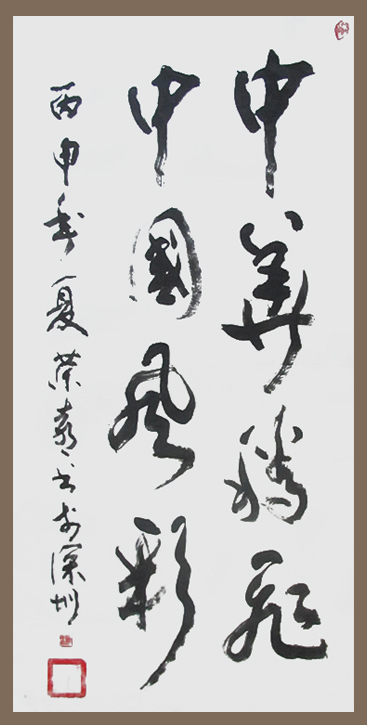 中華騰飛
中國風彩
丙申年夏荣书於深圳